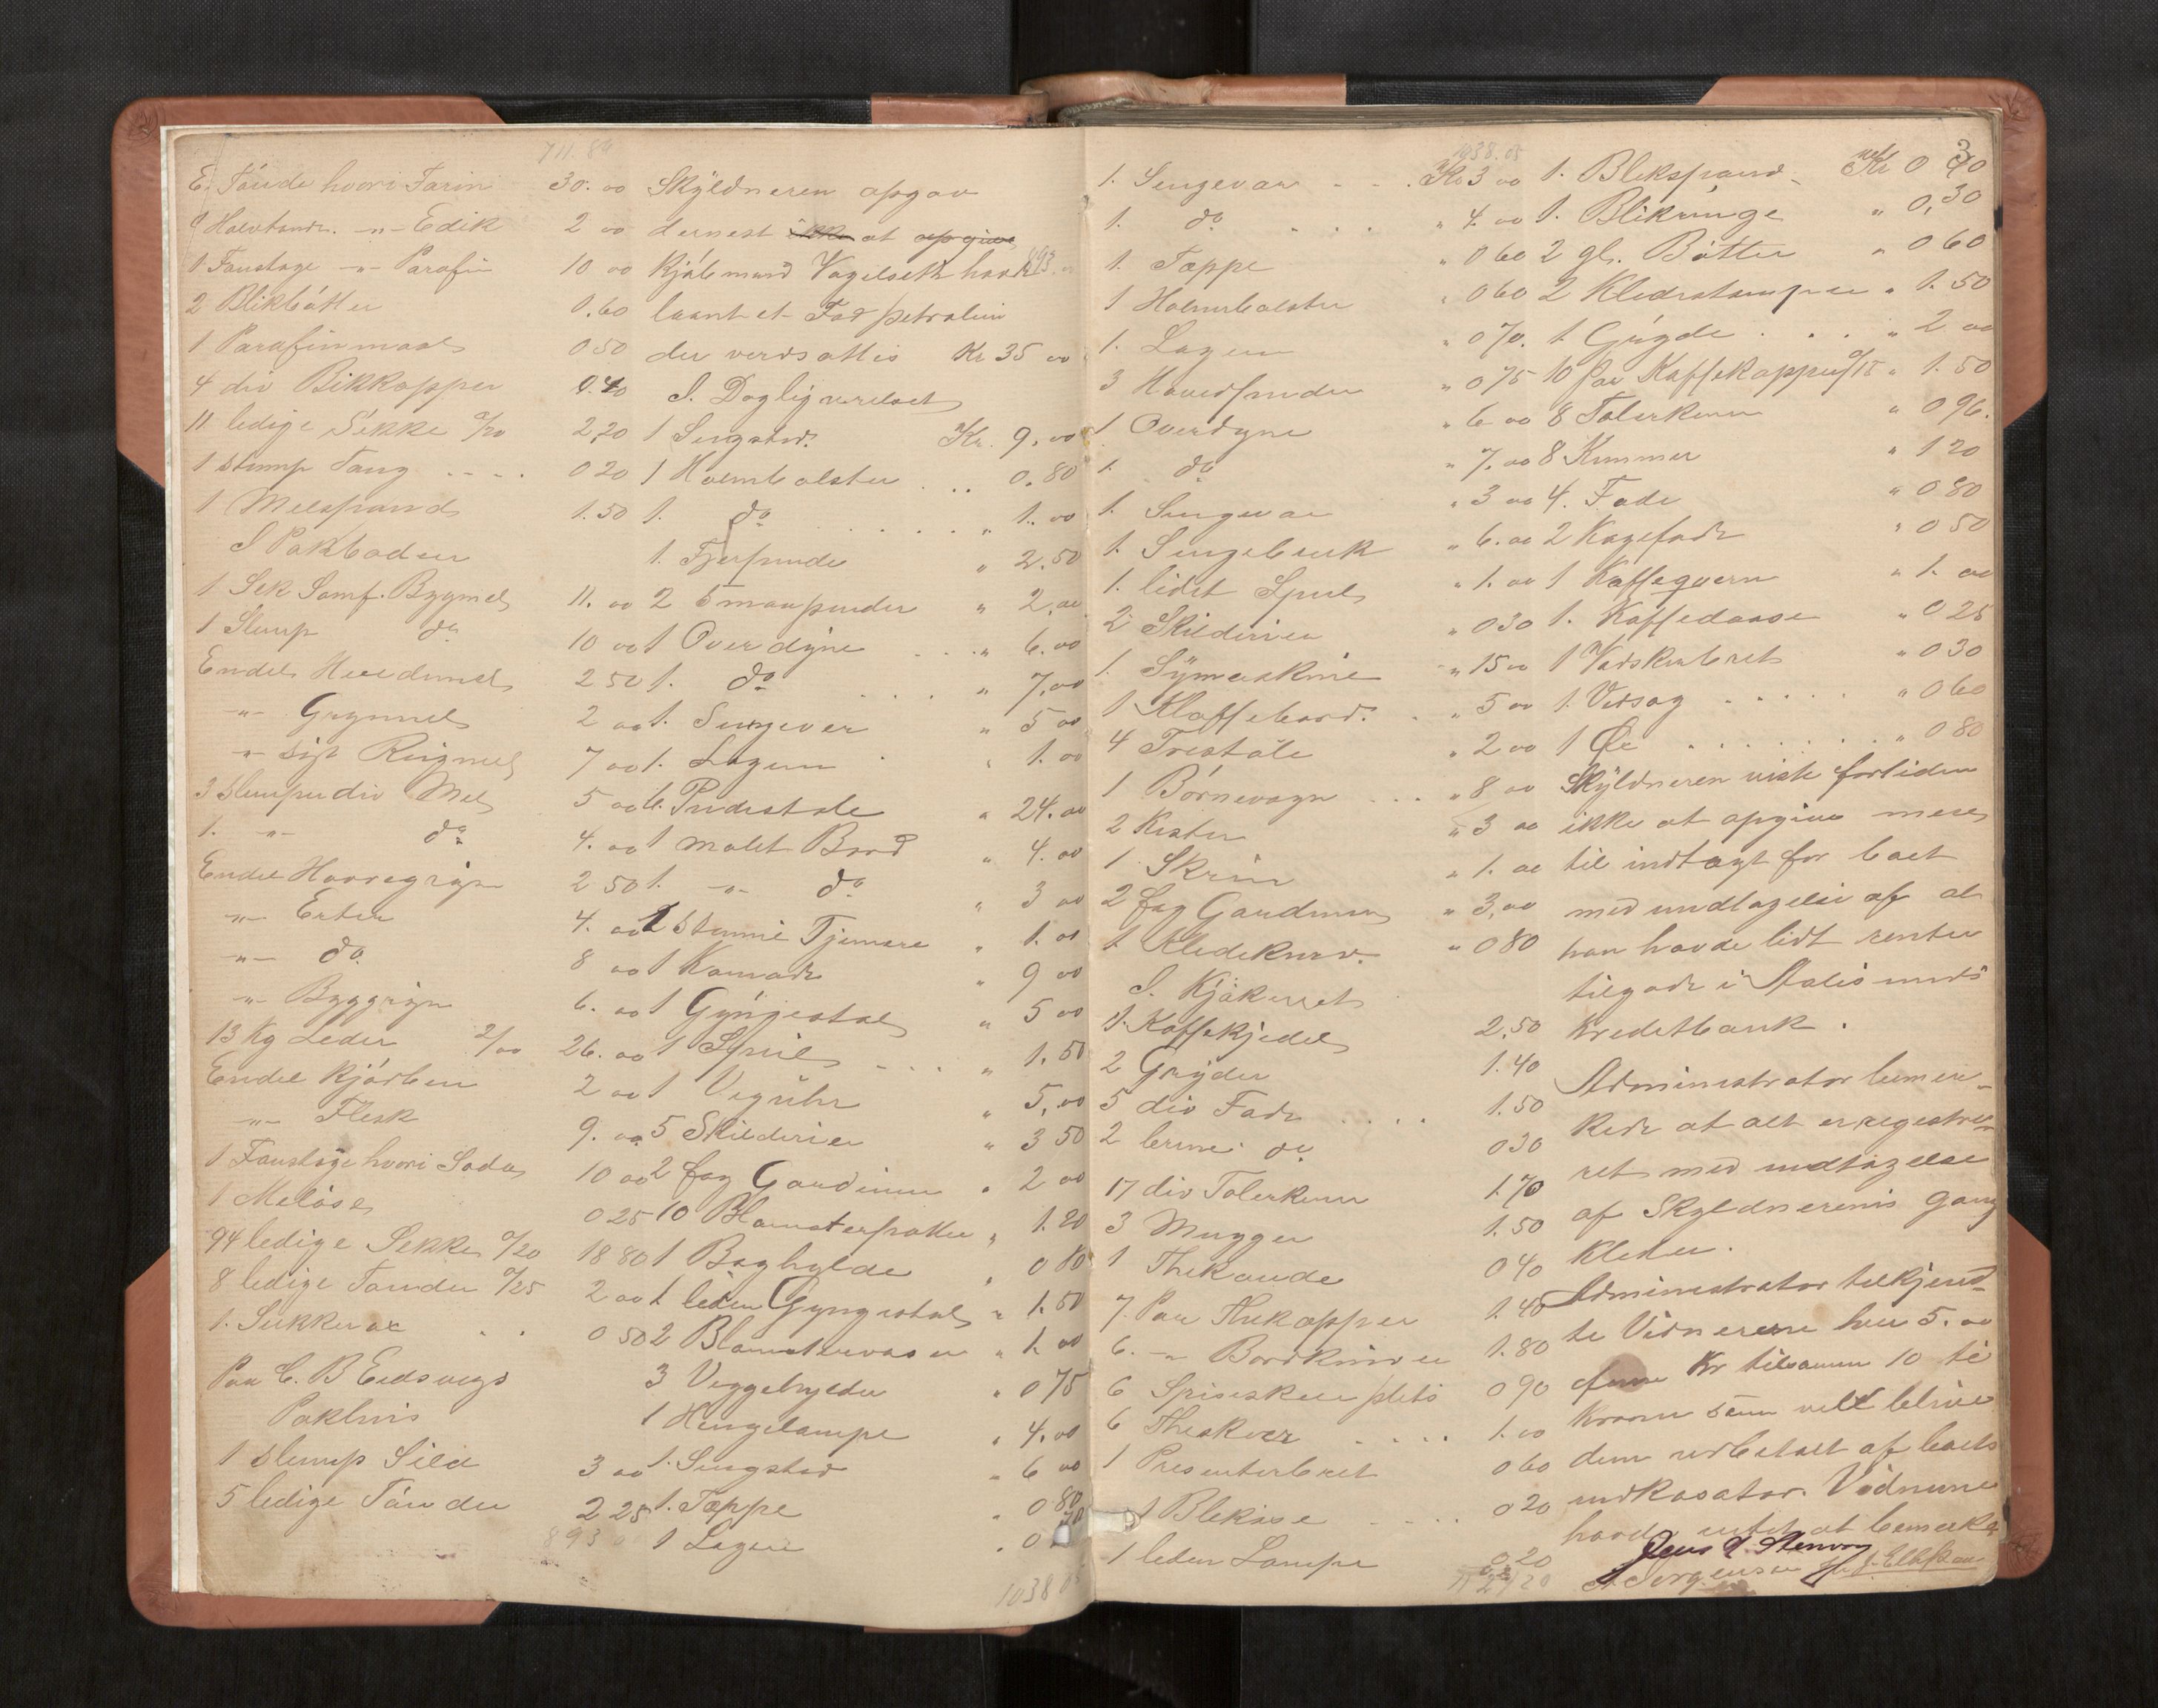 711.80
E. Tønde hvori Farin 30.00
1 Halvtønd. -"- Edik 2 00
1 Faustage -"- Parafin 10 00
2 Blikbøtter 0.60
1 Parafinmaal 0 50
4 div Blikkopper 0.40
11 ledige Sekke 0/20 2,20
1 slump Taug 0 20
1 Melspand 1.50
I Pakboden
1 Sek Samf. Bygmel 11.00
1 Slump do 10 00
Endel Hvedemel 2 50
-"- Grynmel 2 00
-"- sigt Rugmel 7 00
3 slumper div Mel 5 00
1. -"- do 4.00
Endel Havregryn 2 50
-"- Erter 4.00
-"- do. 8 00
-"- Byggryn 6.00
13 Kg Leder 2/00 26.00
Endel Kjørler 2 00
-"- Flesk 9.00
1 Faustage hvori Soda 10 00
1 Meløse 0 25
94 ledige Sekker 0/20 18 80
8 ledige Tønder 0/25 2 00
1. Sukkerax 0 50
Paa C. B Eidsvigs
Pakhus
1 slump Sild 3 00
5 ledige Tønder 2 25
893 0
Skyldneren opgav
dernest ikke at opgive
Kjøbmand Vagelseth havde
893
laant et Fad petrolium
der verdsattes Kr 35 00
I. Dagligverelset
1 Sengsted. Kr. 9.00
1 Halmbolster 0.80
1. do " 1.00
1. Fjerpude " 2.50
2 smaapuder " 2.00
1 Overdyne " 6.00
1. do " 7.00
1. Sengever " 5 00
1. Lagen " 1.00
6. Pudestole " 24.00
1 malet Bord " 4.00
1. -"- do. " 3 00
1 Stumme Tjenere " 1.00
1 Komode " 9 00
1 Gyngestol " 5 00
1 Speil " 1.50
1 Veguhr " 5.00
5 Skilderier " 3 50
2 fag Gardiner " 2 00
10 Blomsterpotter " 1.20
1 Boghylde " 0 80
1 liden Gyngestol " 1.50
2 Blomstervaser " 1.00
3 Veggehylder " 0 75
1 Hengelampe " 4.00
1. Sengsted " 6 00
1. Tæppe " 0 80
1 Lagen " 0 70
1038 05
1038.05
1. Sengevar Kr 3 00
1. do " 4.00
1. Tæppe " 0 60
1 Halmbolster " 0 60
1. Lagen " 0 70.
3 Hovedpuder " 0 75
1 Overdyne " 6 00
1. do " 7.00
1. Sengevar " 3 00
1. Sengebenk " 6.00
1. lidet Speil " 1.00
2 Skilderier " 0 30
1. Symaskine " 15 00
1 Klaffebord. " 5 00
4 Trestole " 2 00
1 Børnevogn " 8 00
2 Kister " 3 00
1 Skrin " 1.00
2 fag Gardiner " 3,00
1 Kledekurv. " 0 80
I. Kjøkenet
1. Kaffekjedel 2.50
2 Gryder 1.40
5 div Fade 1.50
2 lerine do 0 30
17 div Tolerkener 1.70
3 Mugger 1.50
1 Thekande 0 40
7. Par Thekopper 1.40
6. -"- Bordkniver 1.80
6 Spiseskeer plets 0 90
6 Theskeer 1.00
1 Presenterbret 0 60
1 Blekøse 0 20
1 liden Lampe 0 20
3
1. Blekspand Kr 0 40
1. Blikringe " 0,30
2 gl. Bøtter " 0 60
2 Kledestamper " 1.50
1 Grygde " 2 00
10 par Kaffekopper 0/15 " 1.50
8 Tolerkener " 0 96.
8 Kummer " 1 20
4. Fade " 0 80
2 Kagefade " 0 50
1 Kaffeqvern " 1.00
1. Kaffedaase " 0 25
1 Vadskebret " 0 30
1. Vedsag " 0 60
1 Øx " 0 80
Skyldneren viste fortiden
ikke at opgive mere
til indtægt for boet
med undtagelse af at
han havde lidt renter
tilgode i Aalesunds
Kreditbank.
Administrator bemer-
kede at alt er registre-
ret med undtagelse
af Skyldnerens Gang
kleder.
Administrator tilkjend-
te Vidnerene hver 5.00
fem Kr tilsammen 10 ti
kroner som vill blive
dem udbetalt af boets
indkasator. Vidnerne
havde intet at bemerke
Jens Stenvog
A. Jørgensen